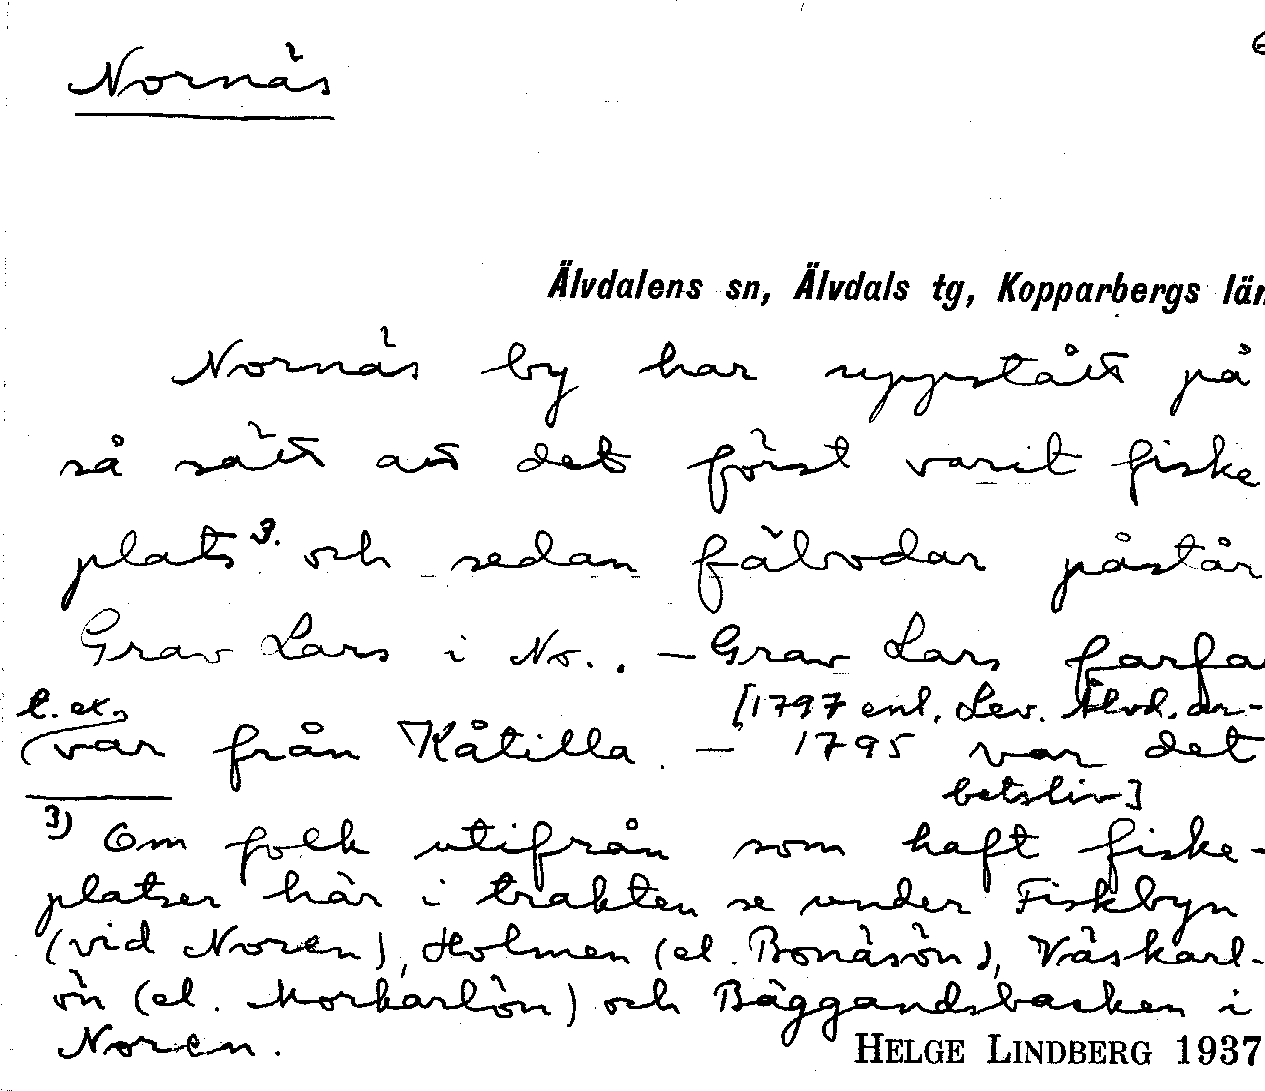 Nornäs
Älvdalens sn, Älvdals tg, Kopparbergs län
Nornäs by har uppstått på
så sätt att det först varit fiske
plats 3. och sedan fäbodar påstår
Grav Lars i No.. — Grav Lars farfa
t. ex. [1797 enl. Lev. Älvd. ar-
var från Kåtilla. — 1795 var det
betsliv]
3) Om folk utifrån som haft fiske-
platser här i trakten se under Fiskbyn
(vid Noren), Holmen (el. Bonäsön), Väskarl-
ön (el. Morkarlön) och Bäggandsbacken i
Noren.
HELGE LINDBERG 1937